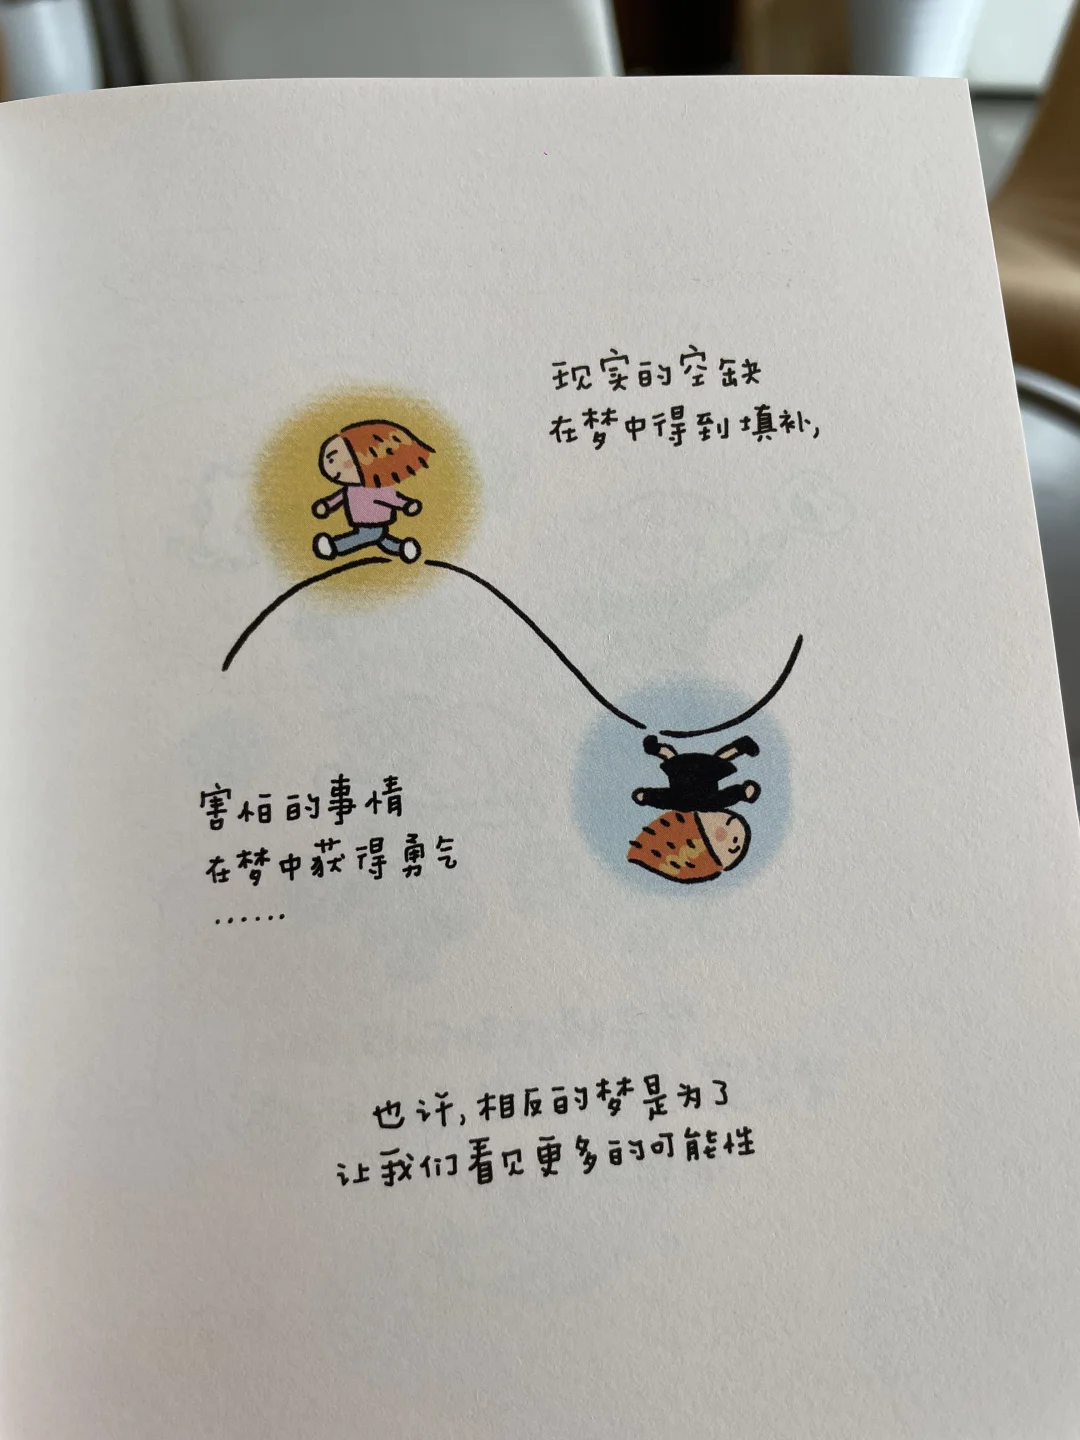 现实的空缺
在梦中得到填补,
害怕的事情
在梦中获得勇气
……
也许,相反的梦是为了
让我们看见更多的可能性